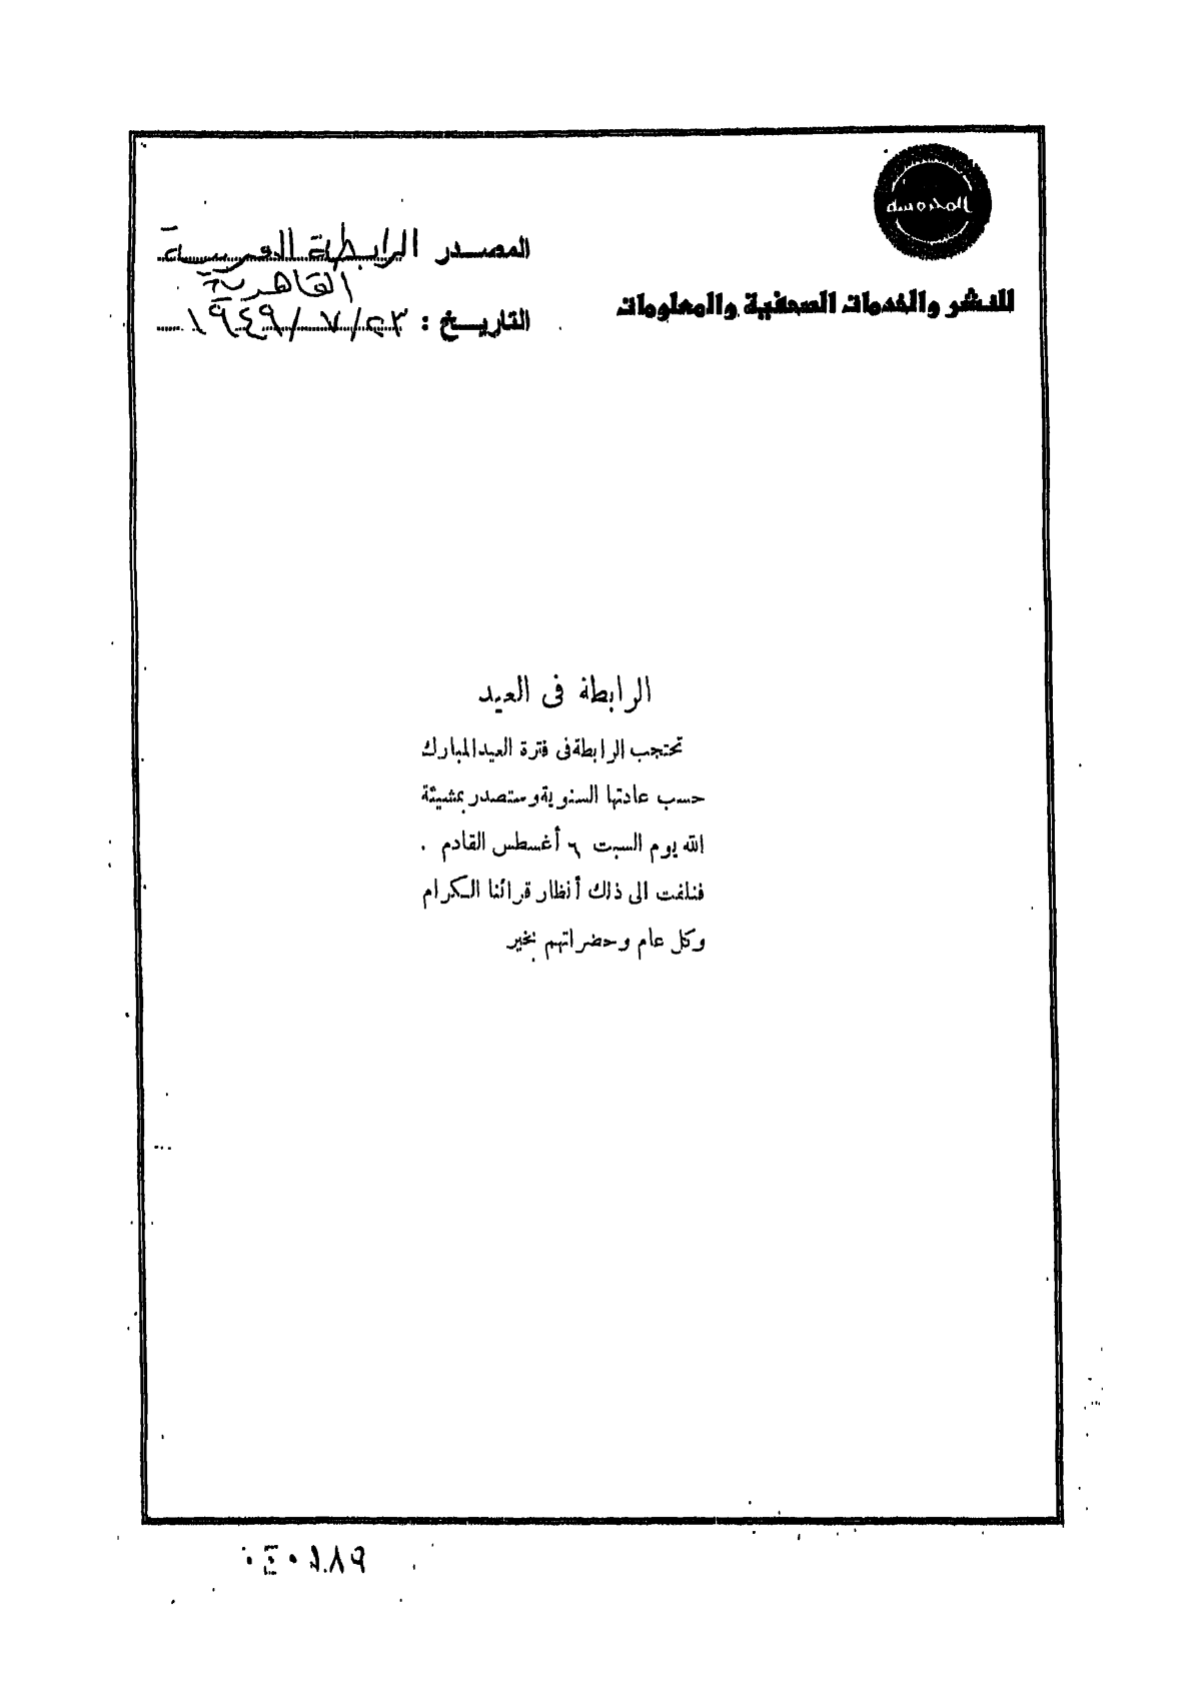 المحروسة
للنشر والخدمات الصحفية والمعلومات
المصدر الرابطة العربية
القاهرية
التاريخ : ٢٣/٧/١٩٤٩
الرابطة فى العيد
تحتجب الرابطة فى فترة العيد المبارك
حسب عادتها السنوية وستصدر بمشيئة
الله يوم السبت ٦ أغسطس القادم .
فنلفت الى ذلك أنظار قرائنا الكرام
وكل عام وحضراتهم بخير